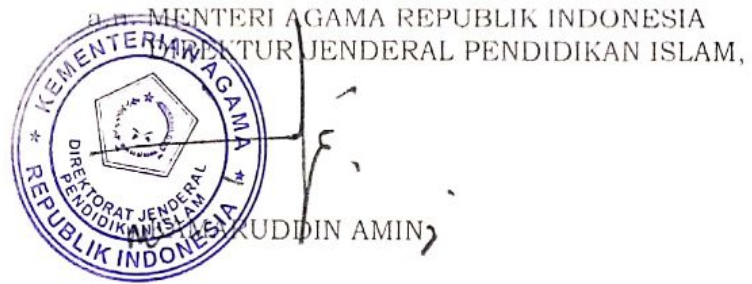 a.n. MENTERI AGAMA REPUBLIK INDONESIA
DIREKTUR JENDERAL PENDIDIKAN ISLAM,
KEMENTERIAN AGAMA
REPUBLIK INDONESIA
DIREKTORAT JENDERAL
PENDIDIKAN ISLAM
AMIN